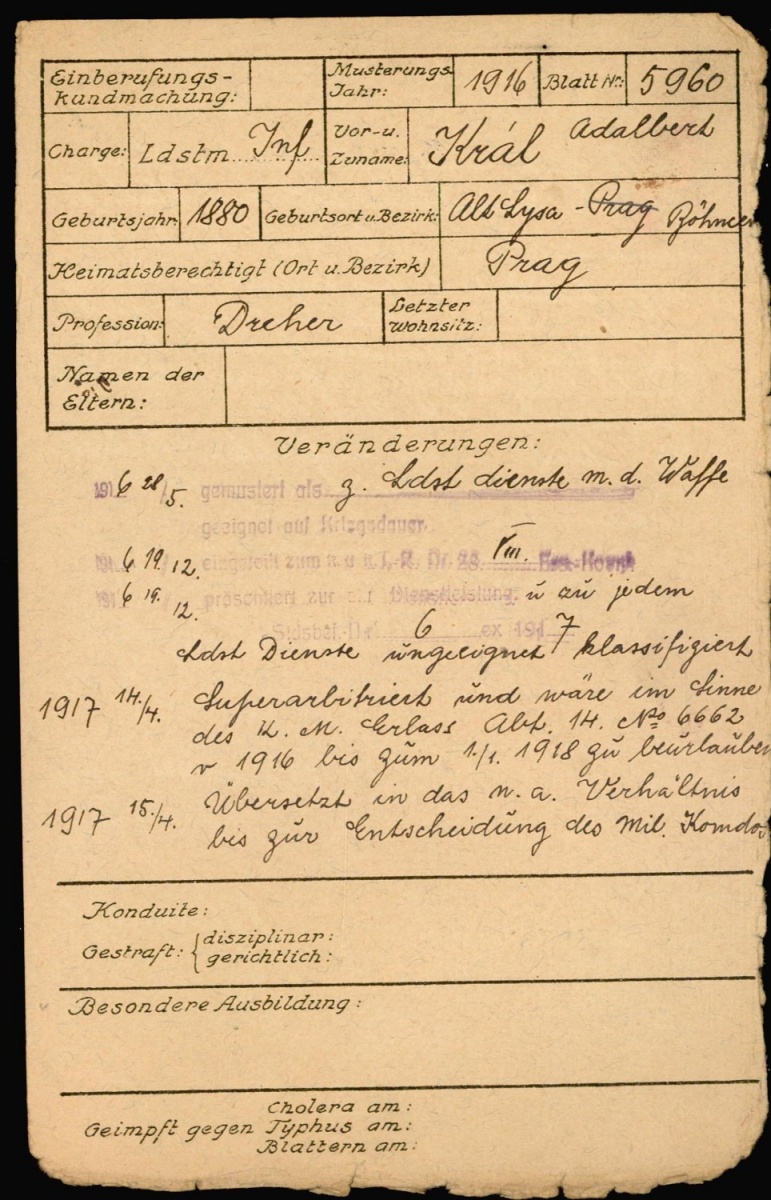 Einberufungs-
kundmachung:
Musterungs
Jahr: 1916 Blatt Nr: 5960
Charge: Ldstm Inf Vor- u.
Zuname: Král Adalbert
Geburtsjahr: 1880 Geburtsort u. Bezirk: Alt Lysa - Prag Böhmen
Heimatsberechtigt (Ort u. Bezirk) Prag
Profession: Dreher Letzter
Wohnsitz:
Namen der
Eltern:
Veränderungen:
191 6 28/5. gemustert als g. Ldst dienste m. d. Waffe
geeignet auf Kriegsdauer.
191 6 19. 12. eingeteilt zum k. u. k. I.-R. Nr. 28 VIII.
191 6 19. 12. präsentiert zur Dienstleistung. u zu jedem
6 ex 191 7
Ldst Dienste ungeeignet klassifiziert
1917 14./4. Superarbitriert und wäre im Sinne
des K. M. Erlass Abt. 14. No 6662
v 1916 bis zum 1./1. 1918 zu beurlauben
1917 15./4. Übersetzt in das n. a. Verhältnis
bis zur Entscheidung des Mil. Komdos
Konduite:
Gestraft: { disziplinar:
gerichtlich:
Besondere Ausbildung:
Cholera am:
Geimpft gegen Typhus am:
Blattern am: